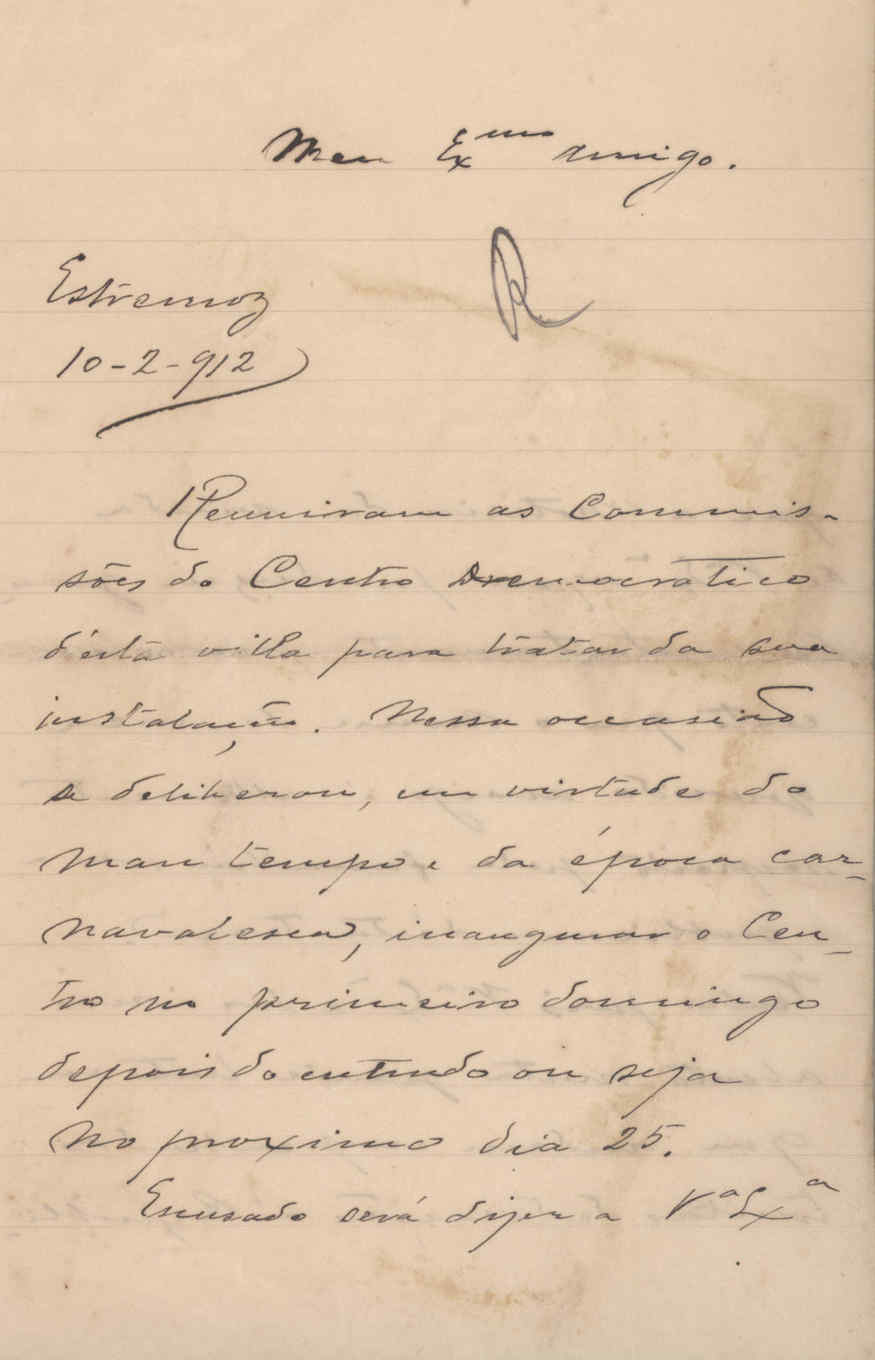 Meu Exmo amigo.
R
Estremoz
10-2-912
Reuniram as Commis-
sões do Centro Democratico
d'esta villa para tratar da sua
instalação. Nessa occasião
se deliberou, em virtude do
mau tempo e da época car-
navalesca, inaugurar o Cen-
tro no primeiro domingo
depois do entrudo ou seja
no proximo dia 25.
Escusado será dizer a Va Exa